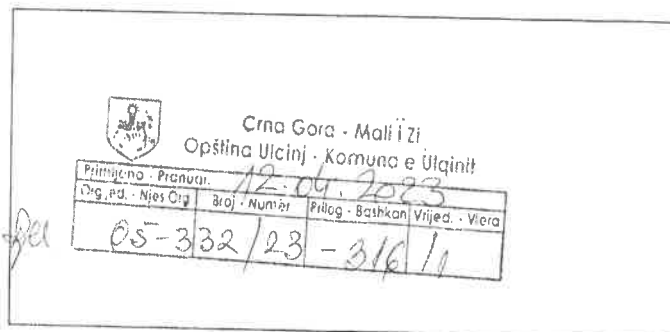 Crna Gora - Mali i Zi
Opština Ulcinj - Komuna e Ulqinit
Primljeno - Pranuar. 12.04.2023
Org.jed. - Njes Org Broj - Numër Prilog - Bashkan Vrijed. - Vlera
05-332/23-316/1